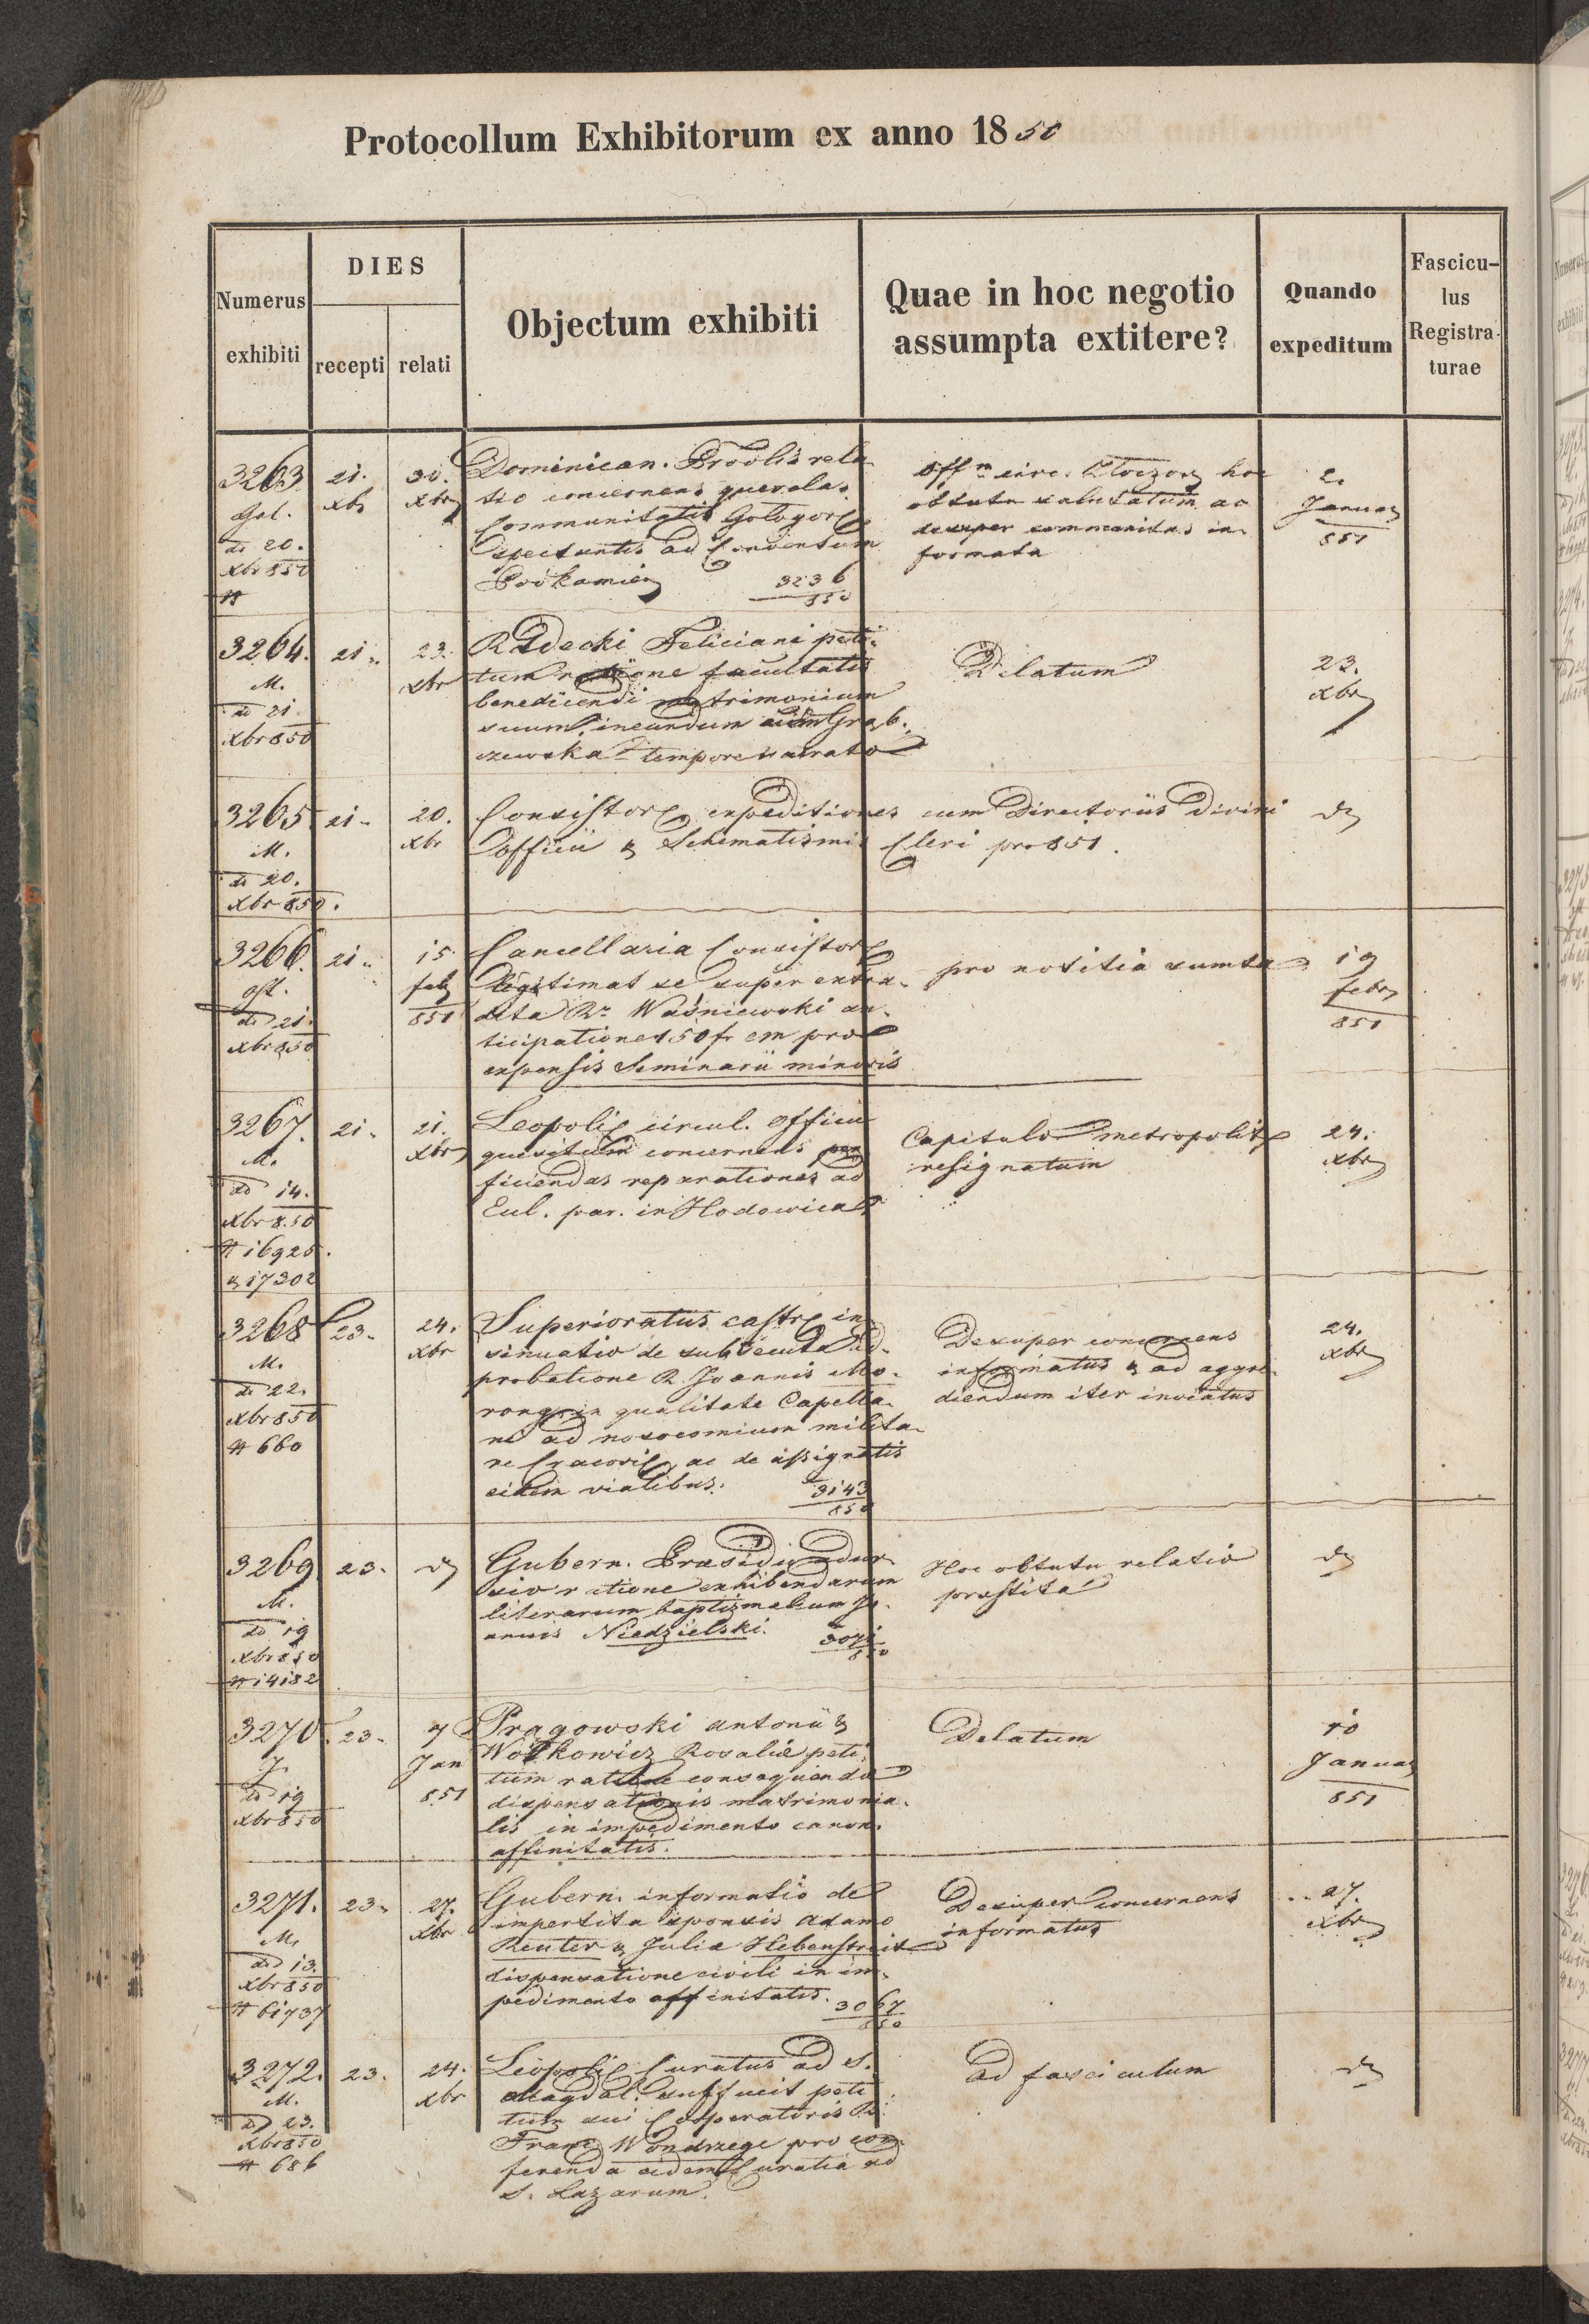 Protocollum Exhibitorum ex anno 1850
Numerus exhibiti
DIES
recepti
relati
Objectum exhibiti
Quae in hoc negotio assumpta extitere?
Quando expeditum
Fascicu-
lus
Registra-
turae
3263
Gal.
dd 20.
Xbr 850
#
21.
Xbr
30.
Xbr
Dominican. Provlis rela
tio concernens querelas
Communitatis Gołogor
spectantis ad Conventum
Podkamien
3236
850
Offo circ. Złoczov hoc
obtutu salutatum ac
desuper communitas in-
formata
2.
Januar
851
3264.
M.
dd 21.
Xbr 850
21.
23.
Xbr
Radecki Feliciani peti-
tum ratione facultatis
benedicendi matrimonium
suum ineundum cum Grab.
czewska tempore sacrato
Delatum
23.
Xbr
3265
M.
dd 20.
Xbr 850.
21.
20.
Xbr
Consistor expeditiones cum Directoriis Divini
Officii & Schematismis Cleri pro 851.
3266.
dd 21.
Xbr 850
21.
15
feb
851
Cancellaria Consistor
legitimat se super extra-
data Rr Waśniewski an-
ticipatione 150 fr cm pro
expensis Seminarii minoris
pro notitia sumta
19
febr
851
3267.
M.
dd 14.
Xbr 850
# 16925.
& 17302
21.
21.
Xbr
Leopoli circul. officii
quesitum concernens per
ficiendas reparationes ad
Eccl. par. in Hodowica
Capitulo metropolit
resignatum
24.
Xbr
3268
M.
dd 22.
Xbr 850
# 660
23.
24.
Xbr
Superioratus castr in
sinuatio de subsecuta ad-
probatione R. Joannis Mo-
rong in qualitate Capella-
ni ad nosocomium milita-
re Cracovi ac de assignatis
eidem vialibus.
3143
850
Desuper concernens
informatus & ad aggre-
diendum iter invitatus
24.
Xbr
3269
M.
dd 19
Xbr 850
# 14182
23.
Gubern. Praesidii
ratione exhibendarum
literarum baptismalium Jo-
annis Niedzielski.
3071
850
Hoc obtutu relatio
prestita
3270.
J.
dd 19
Xbr 850
23.
7
Jan
851
Pragowski Antonii &
Wołkowicz Rosaliae peti-
tum ratione consequenda
dispensationis matrimonia-
lis in impedimento canon.
affinitatis.
Delatum
10
Januar
851
3271.
M.
dd 13.
Xbr 850
# 61737
23.
27.
Xbr
Gubern. informatio de
impertita sponsis Adamo
Reuter & Julia Hebenstreit
dispensatione civili in im-
pedimento affinitatis.
3067
850
Desuper concernens
informatus
27.
Xbr
3272.
M.
dd 23.
Xbr 850
# 686
23.
24.
Xbr
Leopoli Curatus ad S.
Magdal. suffulcit peti
tum sui Cooperatoris R.
Franc. Wondrzege pro con-
ferenda eidem Curatia ad
S. Lazarum.
ad fasciculum